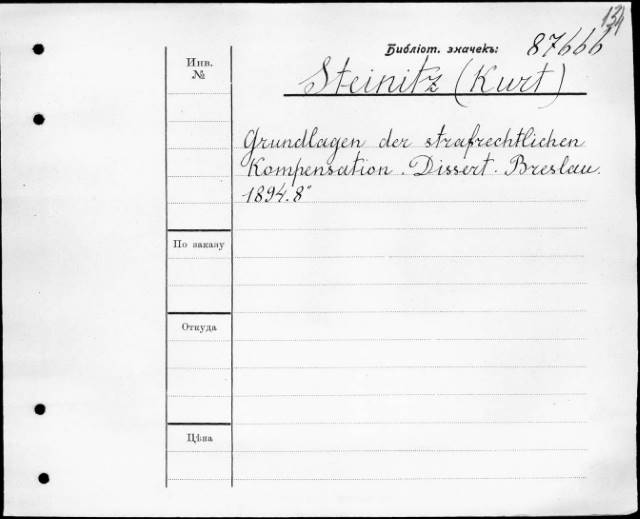 134
Библіот. значекъ: 87666
Инв. №
Steinitz (Kurt)
Grundlagen der strafrechtlichen
Kompensation. Dissert. Breslau.
1894. 8°
По заказу
Откуда
Цѣна